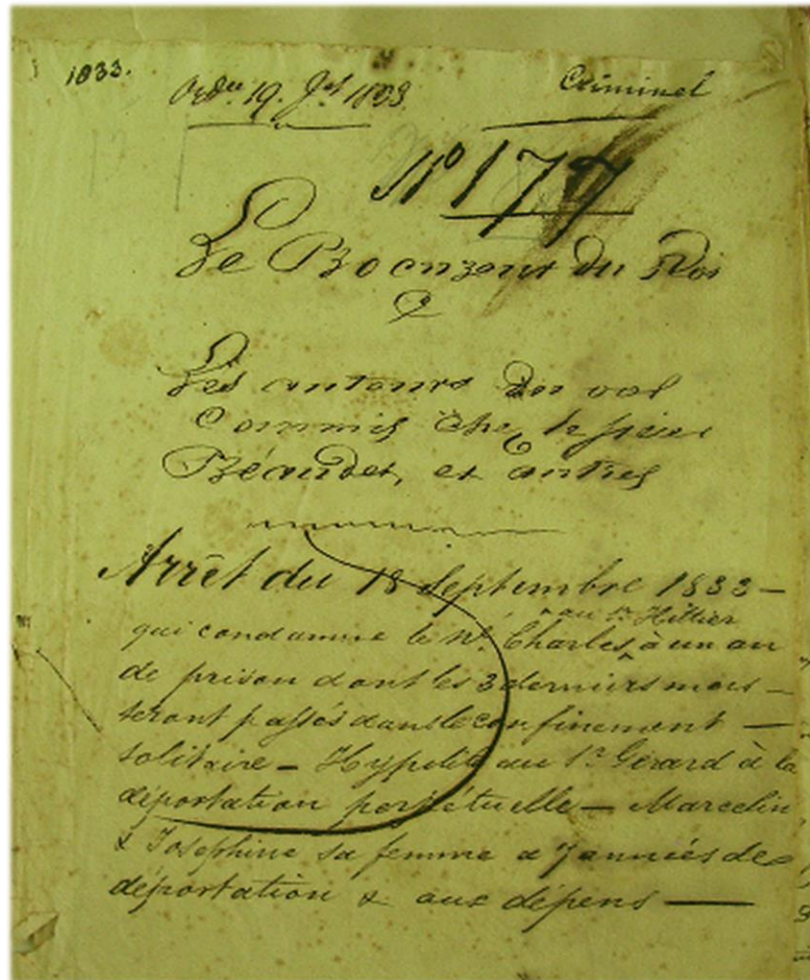 1833.
Ordce 19. Jet 1833
Criminel
No 177
Le Procureur du Roi
C
Les auteurs du vol
Commis chez le sieur
Béaudet, et autres
Arrêt du 18 Septembre 1833 —
au Sr. Hillier
qui condamne le Nr. Charles ^ à un an
de prison dont les 3 derniers mois —
seront passés dans le confinement —
solitaire — Hypolite au Sr. Gérard à la
déportation perpétuelle — Marcelin,
& Josephine sa femme a 7 années de
déportation & aux dépens —